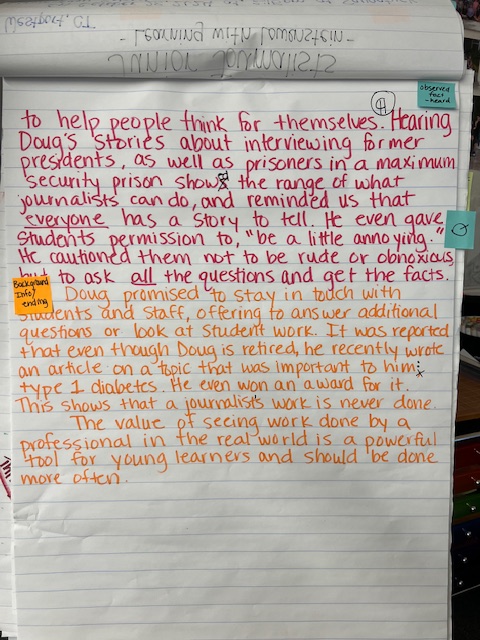 Westport, CT
- Learning with Lowenstein -
Junior Journalists
4
observed
fact
- heard
to help people think for themselves. Hearing
Doug's stories about interviewing former
presidents, as well as prisoners in a maximum
security prison show the range of what
journalists can do, and reminded us that
everyone has a story to tell. He even gave
students permission to, "be a little annoying."
Q
He cautioned them not to be rude or obnoxious
but to ask all the questions and get the facts.
Background
Info/
ending
Doug promised to stay in touch with
students and staff, offering to answer additional
questions or look at student work. It was reported
that even though Doug is retired, he recently wrote
an article on a topic that was important to him:
type 1 diabetes. He even won an award for it.
This shows that a journalist's work is never done.
The value of seeing work done by a
professional in the real world is a powerful
tool for young learners and should be done
more often.